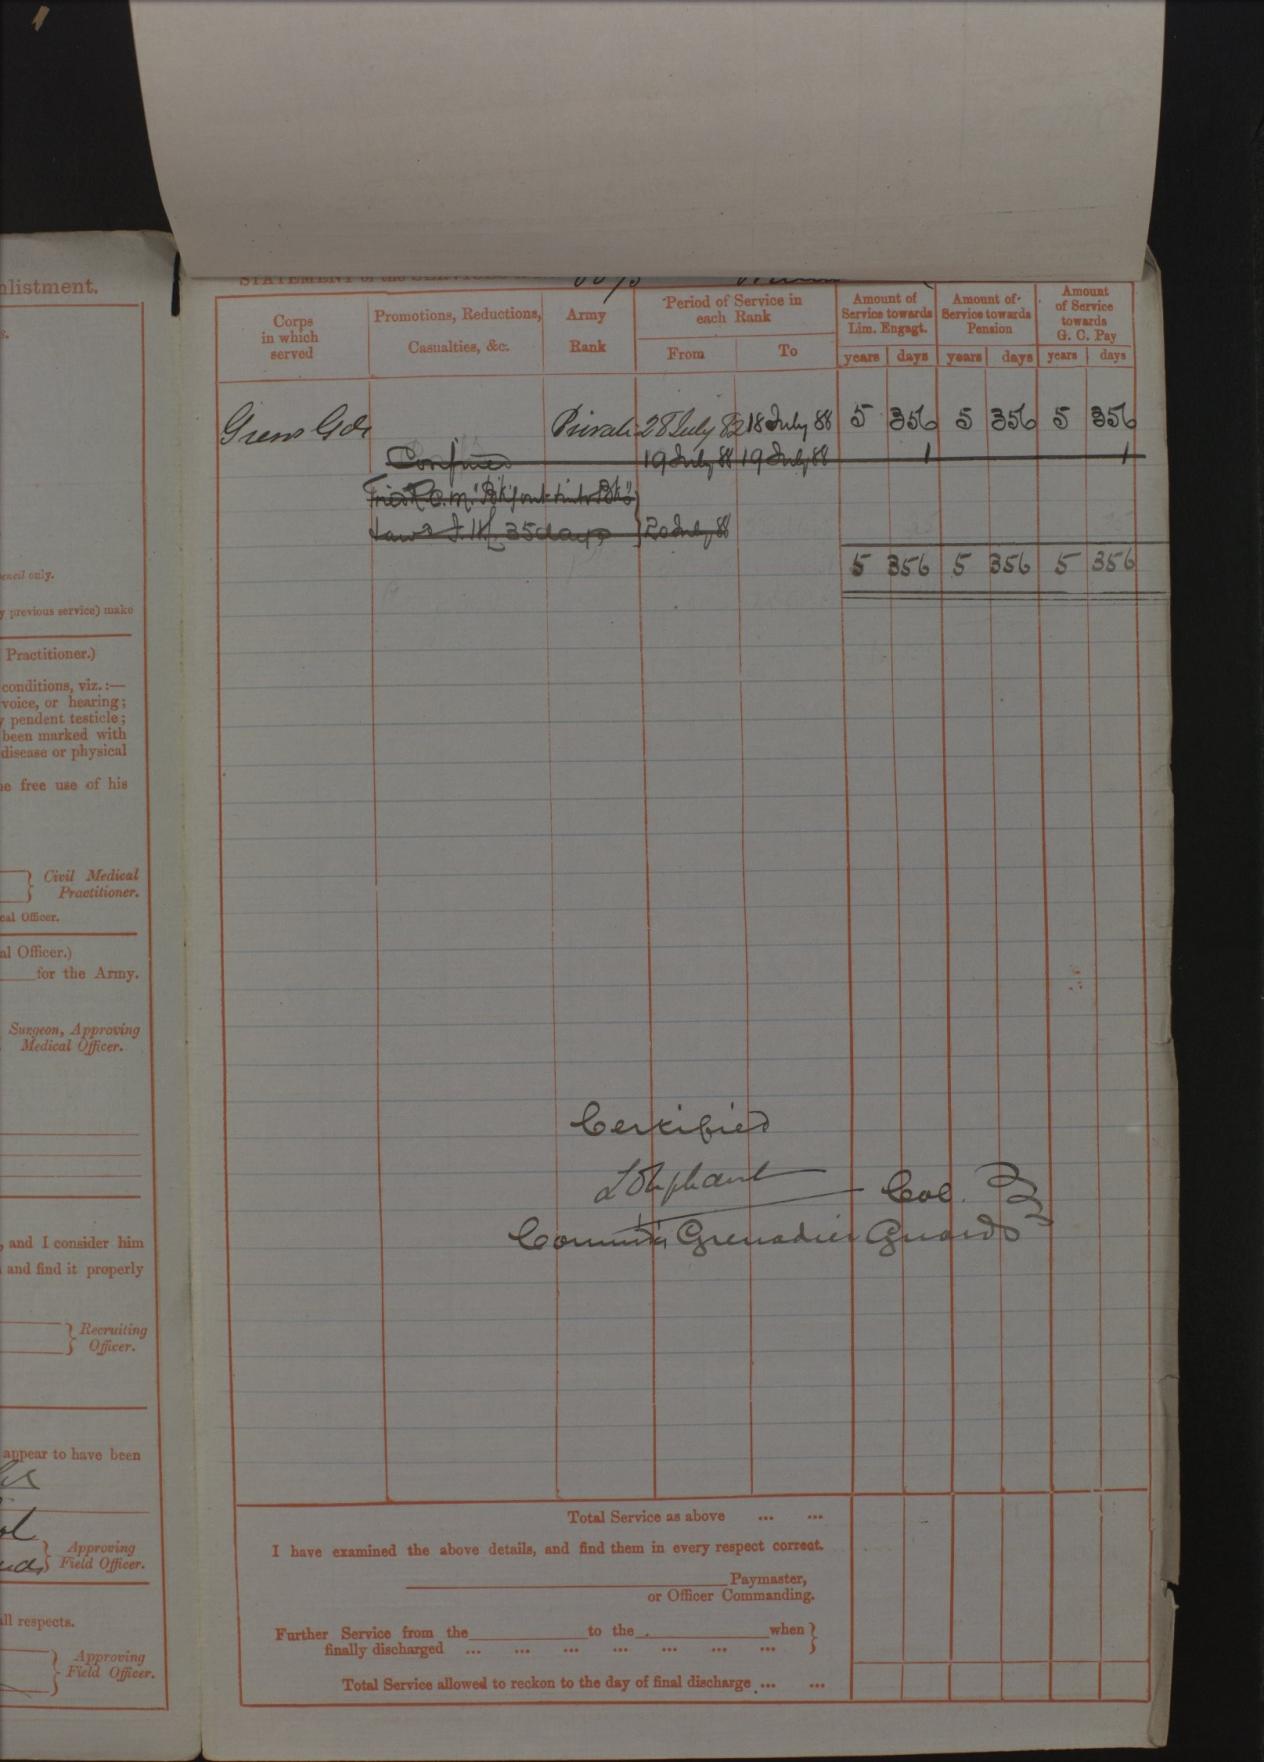 nlistment.
STATEMENT of the SERVICES
Corps in which served
Promotions, Reductions, Casualties, &c.
Army Rank
Period of Service in each Rank
From
To
Amount of Service towards Lim. Engagt.
Amount of Service towards Pension
Amount of Service towards G. C. Pay
years days years days years days
Grens Gds Private 28 July 82 18 July 88 5 356 5 356 5 356
Confined 19 July 88 19 July 88 1 1
Tried R.C.M.
35 days 20 July 88
5 356 5 356 5 356
encil only.
y previous service) make
Practitioner.)
conditions, viz.:—
voice, or hearing;
y pendent testicle;
been marked with
disease or physical
he free use of his
Civil Medical
Practitioner.
cal Officer.
al Officer.)
for the Army.
Surgeon, Approving
Medical Officer.
Certified
L Oliphant Col.
Commdg Grenadier Guards
, and I consider him
and find it properly
Recruiting
Officer.
appear to have been
Approving
Field Officer.
ll respects.
Approving
Field Officer.
Total Service as above ... ...
I have examined the above details, and find them in every respect correct.
Paymaster,
or Officer Commanding.
Further Service from the to the when
finally discharged ... ... ... ... ... ...
Total Service allowed to reckon to the day of final discharge ... ...